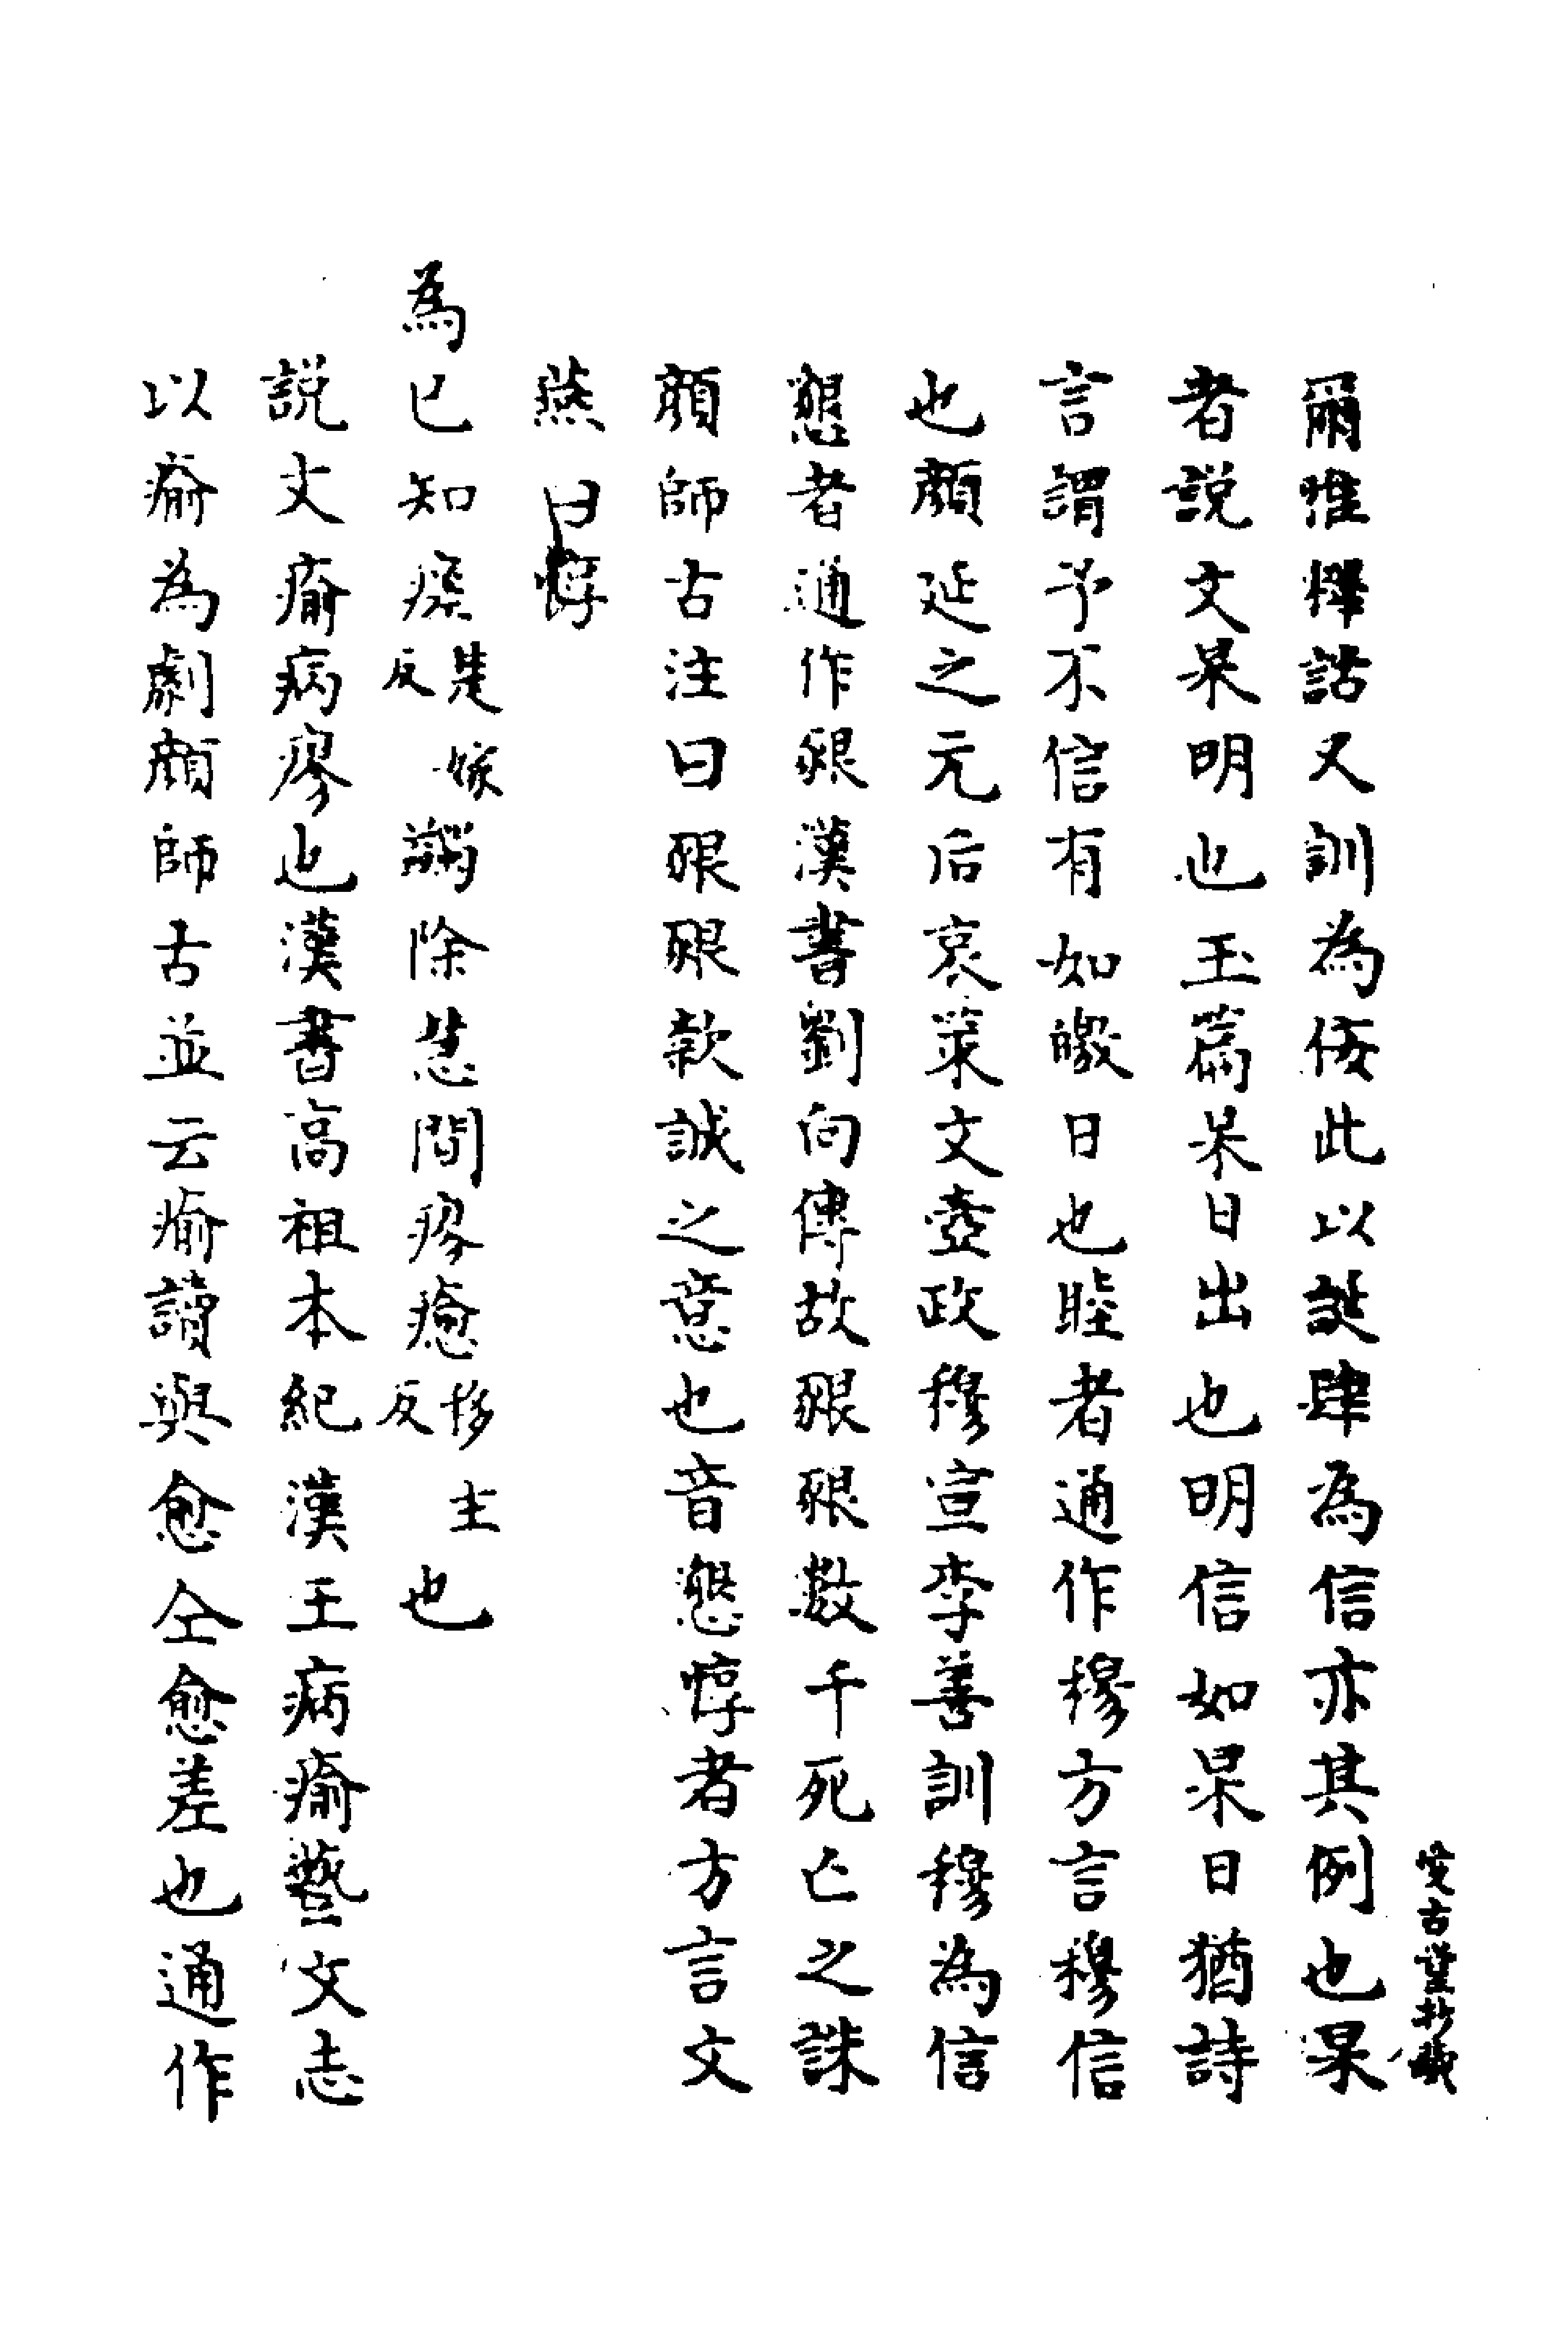 爾雅釋詁又訓為信此以誕肆為信亦其例也杲
者説文杲明也玉篇杲日出也明信如杲日猶詩
言謂予不信有如皦日也睦者通作穆方言穆信
也顏延之元后哀策文壼政穆宣李善訓穆為信
懇者通作豤漢書劉向傳故豤豤數千死亡之誅
顏師古注曰豤豤款誠之意也音懇惇者方言文
燕曰惇
為已知瘥楚嫁反蠲除慧間瘳癒移主反也
説文瘉病瘳也漢書高祖本紀漢王病瘉藝文志
以瘉為劇顏師古並云瘉讀與愈仝愈差也通作